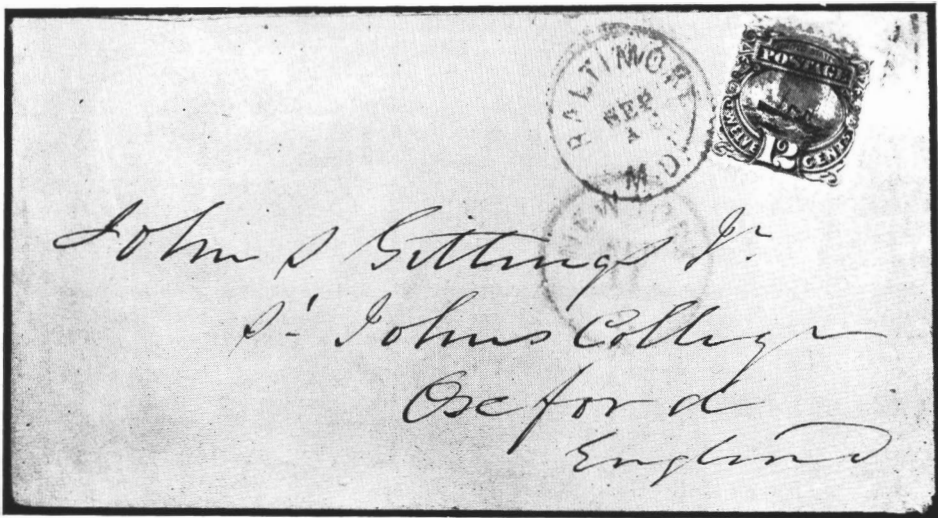 BALTIMORE
SEP
M.D.
POSTAGE
TWELVE 12 CENTS
NEW YORK
John S Gittings Jr.
St Johns College
Oxford
England